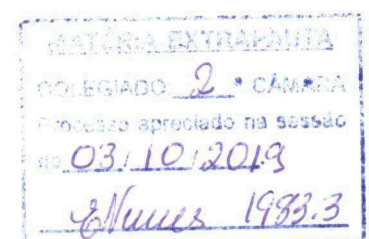 MATÉRIA EXTRAPAUTA
COLEGIADO 2ª CÂMARA
Processo apreciado na sessão
de 03/10/2019
ENunes 1983.3